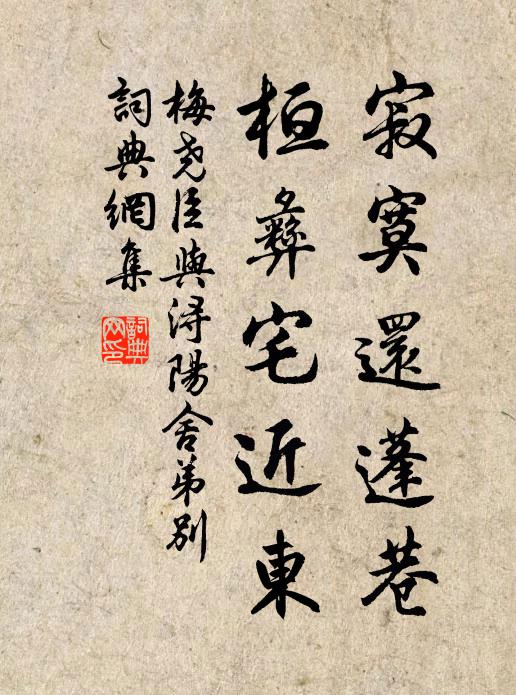 寂寞還蓬巷
桓彝宅近東
梅堯臣與浔陽舍弟別
詞典網集
詞典网印